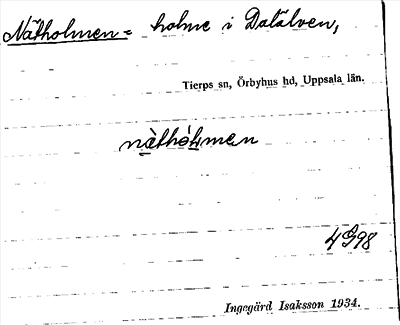 Nätholmen = holme i Dalälven,
Tierps sn, Örbyhus hd, Uppsala län.
nàthólmen
4998
Ingegärd Isaksson 1934.